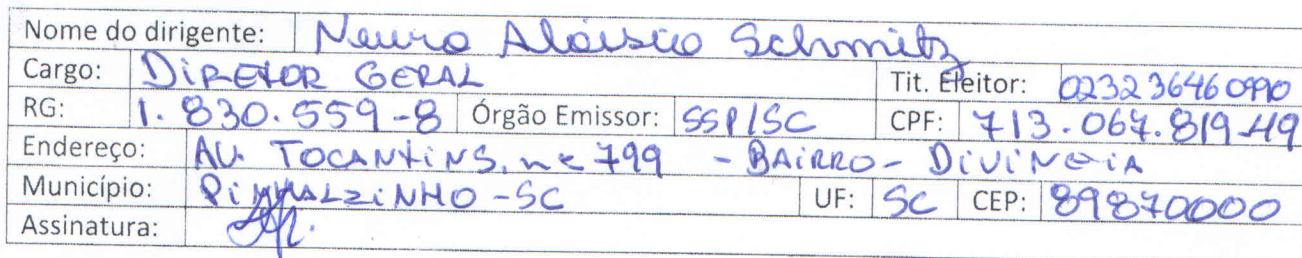 Nome do dirigente: Neuro Aloisio Schmitz
Cargo: DIRETOR GERAL Tit. Eleitor: 023236460990
RG: 1.830.559-8 Órgão Emissor: SSP/SC CPF: 713.067.819-49
Endereço: AV. TOCANTINS, nº 799 - BAIRRO - DIVINEIA
Município: PINHALZINHO - SC UF: SC CEP: 89870000
Assinatura: